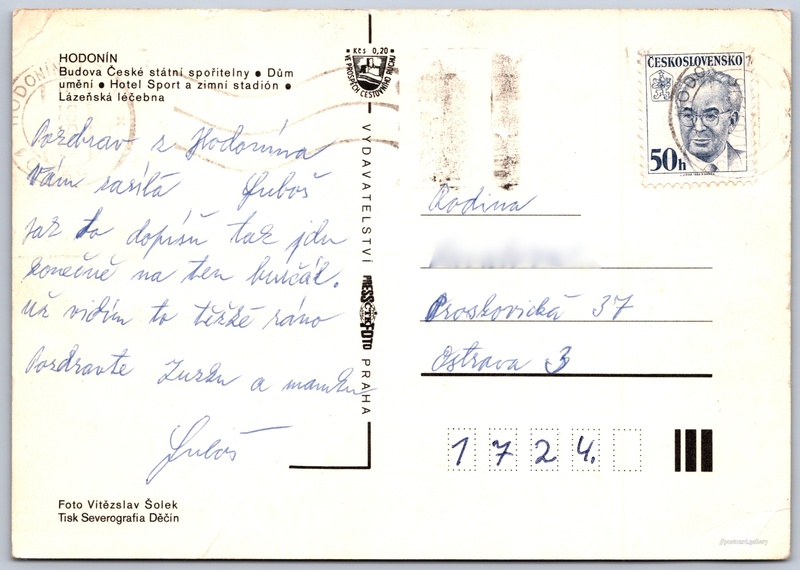 HODONÍN
Budova České státní spořitelny • Dům
umění • Hotel Sport a zimní stadión •
Lázeňská léčebna
Pozdrav z Hodonína
Vám zasílá Luboš
jak to dopíšu tak jdu
konečně na ten burčák.
Už vidím to těžké ráno
Pozdravte Zuzku a mamku
Luboš
Foto Vítězslav Šolek
Tisk Severografia Děčín
Kčs 0,20
VE PROSPĚCH CESTOVNÍHO RUCHU
VYDAVATELSTVÍ PRESSFOTO PRAHA
ČTK
HODONÍN
ČESKOSLOVENSKO
50h
Rodina
Proskovická 37
Ostrava 3
1 7 2 4.
@postcard.gallery